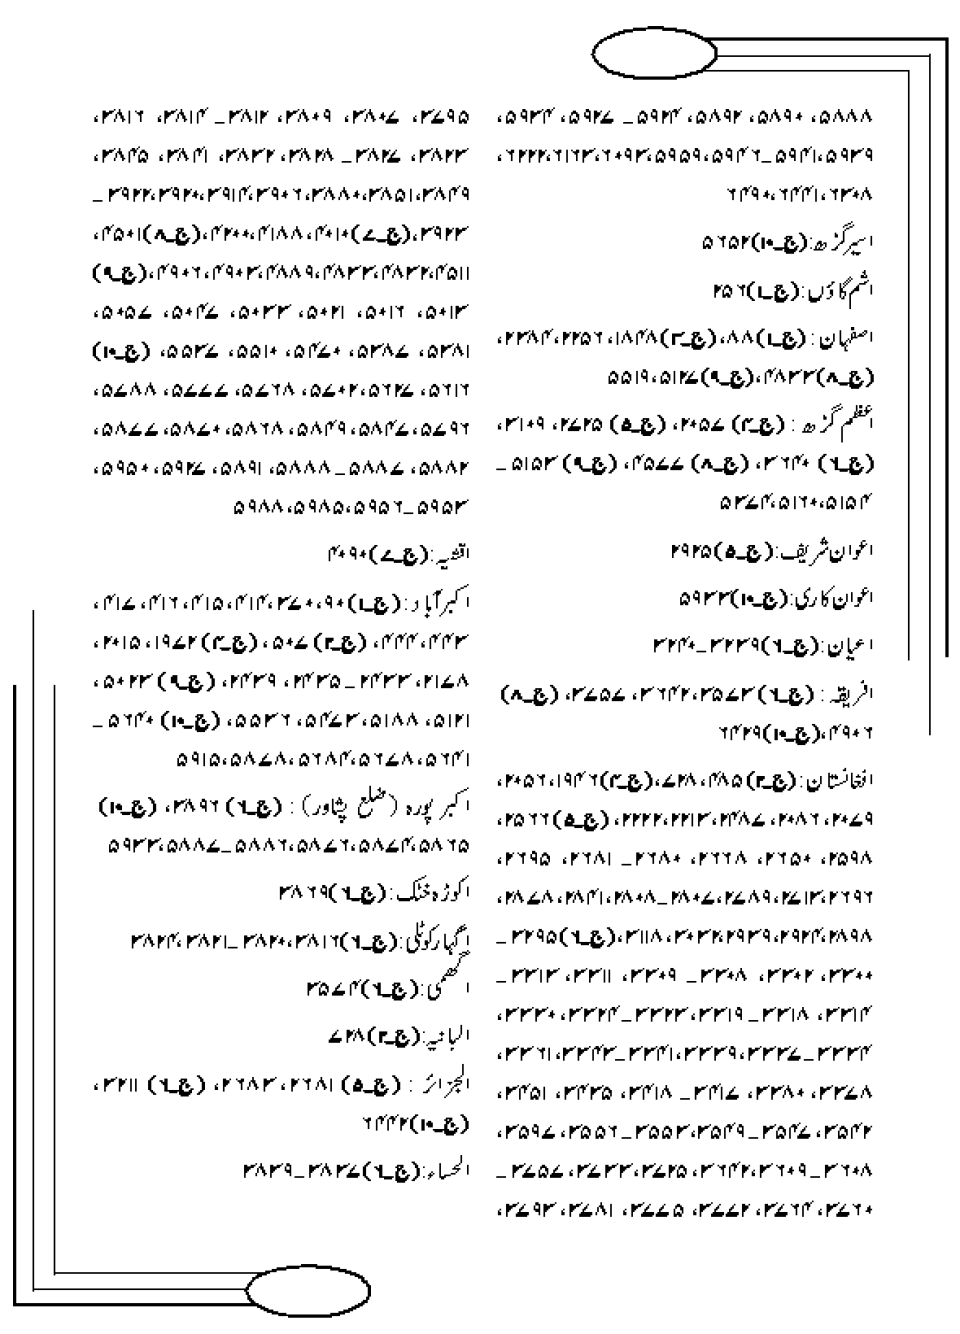 ۵۸۸۸، ۵۸۹۰، ۵۸۹۲، ۵۹۲۴۔ ۵۹۲۷، ۵۹۳۴،
۵۹۳۹،۵۹۴۱۔۵۹۴۶،۵۹۵۹،۶۰۹۳،۶۱۲۳،۶۲۲۲،
۶۳۰۸،۶۴۴۱،۶۴۹۰
اسیرگڑھ:(ج۔۱۰)۵۶۵۲
اشم گاؤں:(ج۔۱)۲۵۶
اصفہان: (ج۔۱)۸۸،(ج۔۳)۱۸۴۸، ۲۲۵۶، ۲۳۸۴،
(ج۔۸)۴۸۳۳،(ج۔۹)۵۱۴۷،۵۵۱۹
اعظم گڑھ: (ج۔۳) ۲۰۵۷، (ج۔۵) ۲۷۲۵، ۳۱۰۹،
(ج۔۶) ۳۶۴۰، (ج۔۸) ۴۵۷۷، (ج۔۹) ۵۱۵۳۔
۵۱۵۴،۵۱۶۰،۵۳۷۴
اعوان شریف:(ج۔۵)۲۹۲۵
اعوان کاری:(ج۔۱۰)۵۹۳۳
اعیان:(ج۔۶)۳۲۳۹۔۳۲۴۰
افریقہ: (ج۔۶)۳۵۷۳، ۳۶۴۲، ۳۷۵۷، (ج۔۸)
۴۹۰۶،(ج۔۱۰)۶۴۲۹
افغانستان:(ج۔۲)۴۸۵، ۷۲۸،(ج۔۳)۱۹۴۶، ۲۰۵۶،
۲۰۷۹، ۲۰۸۶، ۲۴۸۷، ۲۲۱۳، ۲۲۲۲، (ج۔۵)۲۵۶۶،
۲۵۹۸، ۲۶۵۰، ۲۶۶۸، ۲۶۸۰۔ ۲۶۸۱، ۲۶۹۵،
۲۶۹۶،۲۷۱۳،۲۷۸۹،۲۸۰۷۔۲۸۰۸،۲۸۴۱،۲۸۷۸،
۲۸۹۸،۲۹۲۴،۲۹۳۹،۳۰۳۲،۳۱۱۸،(ج۔۶)۳۲۹۵۔
۳۳۰۰، ۳۳۰۲، ۳۳۰۸۔ ۳۳۰۹، ۳۳۱۱، ۳۳۱۳۔
۳۳۱۴، ۳۳۱۸۔ ۳۳۱۹، ۳۳۲۲۔۳۳۲۴، ۳۳۳۰،
۳۳۳۴۔۳۳۳۷،۳۳۳۹،۳۳۴۱۔۳۳۴۳،۳۳۶۱،
۳۳۷۸، ۳۳۸۰، ۳۴۱۷۔ ۳۴۱۸، ۳۴۳۵، ۳۴۵۱،
۳۵۴۲، ۳۵۴۷۔۳۵۴۹، ۳۵۵۳۔۳۵۵۶، ۳۵۹۷،
۳۶۰۸۔۳۶۰۹، ۳۶۴۲، ۳۷۲۵، ۳۷۳۳، ۳۷۵۷۔
۳۷۶۰، ۳۷۶۴، ۳۷۷۲، ۳۷۷۵، ۳۷۸۱، ۳۷۹۳،
۳۷۹۵، ۳۸۰۷، ۳۸۰۹، ۳۸۱۲۔ ۳۸۱۴، ۳۸۱۶،
۳۸۲۳، ۳۸۲۷۔ ۳۸۲۸، ۳۸۳۲، ۳۸۴۱، ۳۸۴۵،
۳۸۴۹،۳۸۵۱،۳۸۸۰،۳۹۰۶،۳۹۱۴،۳۹۲۰،۳۹۲۲۔
۳۹۲۳،(ج۔۷)۴۰۱۰،۴۱۸۸،۴۲۰۰،(ج۔۸)۴۵۰۱،
۴۵۱۱،۴۸۳۲،۴۸۳۳،۴۸۸۹،۴۹۰۳،۴۹۰۶،(ج۔۹)
۵۰۱۳، ۵۰۱۶، ۵۰۲۱، ۵۰۳۳، ۵۰۴۷، ۵۰۵۷،
۵۳۸۱، ۵۳۸۷، ۵۴۷۰، ۵۵۱۰، ۵۵۳۷، (ج۔۱۰)
۵۶۱۶، ۵۶۲۷، ۵۷۰۲، ۵۷۶۸، ۵۷۷۷، ۵۷۸۸،
۵۷۹۶، ۵۸۴۷، ۵۸۴۹، ۵۸۶۸، ۵۸۷۰، ۵۸۷۷،
۵۸۸۲، ۵۸۸۷۔۵۸۸۸، ۵۸۹۱، ۵۹۲۷، ۵۹۵۰،
۵۹۵۳۔۵۹۵۶،۵۹۸۵،۵۹۸۸
اقشیہ:(ج۔۷)۴۰۹۰
اکبرآباد:(ج۔۱)۹۰، ۳۷۰، ۴۱۴، ۴۱۵، ۴۱۶، ۴۱۷،
۴۴۳، ۴۴۴، (ج۔۲) ۵۰۷، (ج۔۳) ۱۹۷۲، ۲۰۱۵،
۲۱۷۸، ۲۴۳۳۔ ۲۴۳۵، ۲۴۳۹، (ج۔۹) ۵۰۲۳،
۵۱۲۱، ۵۱۸۸، ۵۴۷۳، ۵۵۳۶، (ج۔۱۰) ۵۶۴۰۔
۵۶۴۱،۵۶۷۸،۵۶۸۴،۵۸۷۸،۵۹۱۵
اکبر پورہ (ضلع پشاور): (ج۔۶) ۳۸۹۶، (ج۔۱۰)
۵۸۶۵،۵۸۷۴،۵۸۷۶،۵۸۸۶۔۵۸۸۷،۵۹۳۳
اکوڑہ خٹک:(ج۔۶)۳۸۶۹
اگہارکوٹلی:(ج۔۶)۳۸۱۶،۳۸۲۰۔۳۸۲۱،۳۸۲۴
اگھمی:(ج۔۶)۳۵۷۴
البانیہ:(ج۔۲)۷۲۸
الجزائر: (ج۔۵) ۲۶۸۱، ۲۶۸۳، (ج۔۶) ۳۲۱۱،
(ج۔۱۰)۶۴۴۲
الحساء:(ج۔۶)۳۸۳۷۔۳۸۳۹